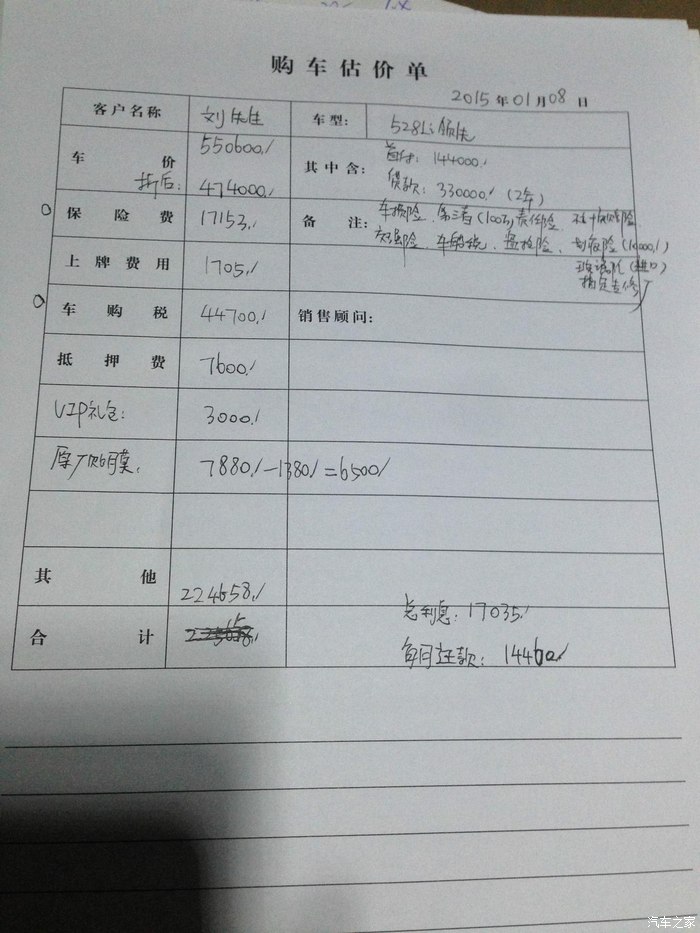 购车估价单
2015年01月08日
客户名称 刘先生 车型: 528Li领先
车价 550600./ 其中含: 首付: 144000./
折后: 474000./ 贷款: 330000./ (2年)
保险费 17153./ 备注: 车损险、第三者(100万)责任险、不计免赔险
交强险、车船税、盗抢险、划痕险(10000./)
上牌费用 1705./ 玻璃险(进口)
指定专修厂
车购税 44700./ 销售顾问:
抵押费 7600./
VIP礼包: 3000./
原厂贴膜: 7880./-1380/=6500/
其他
224658./
合计
总利息: 17035./
每月还款: 14460/